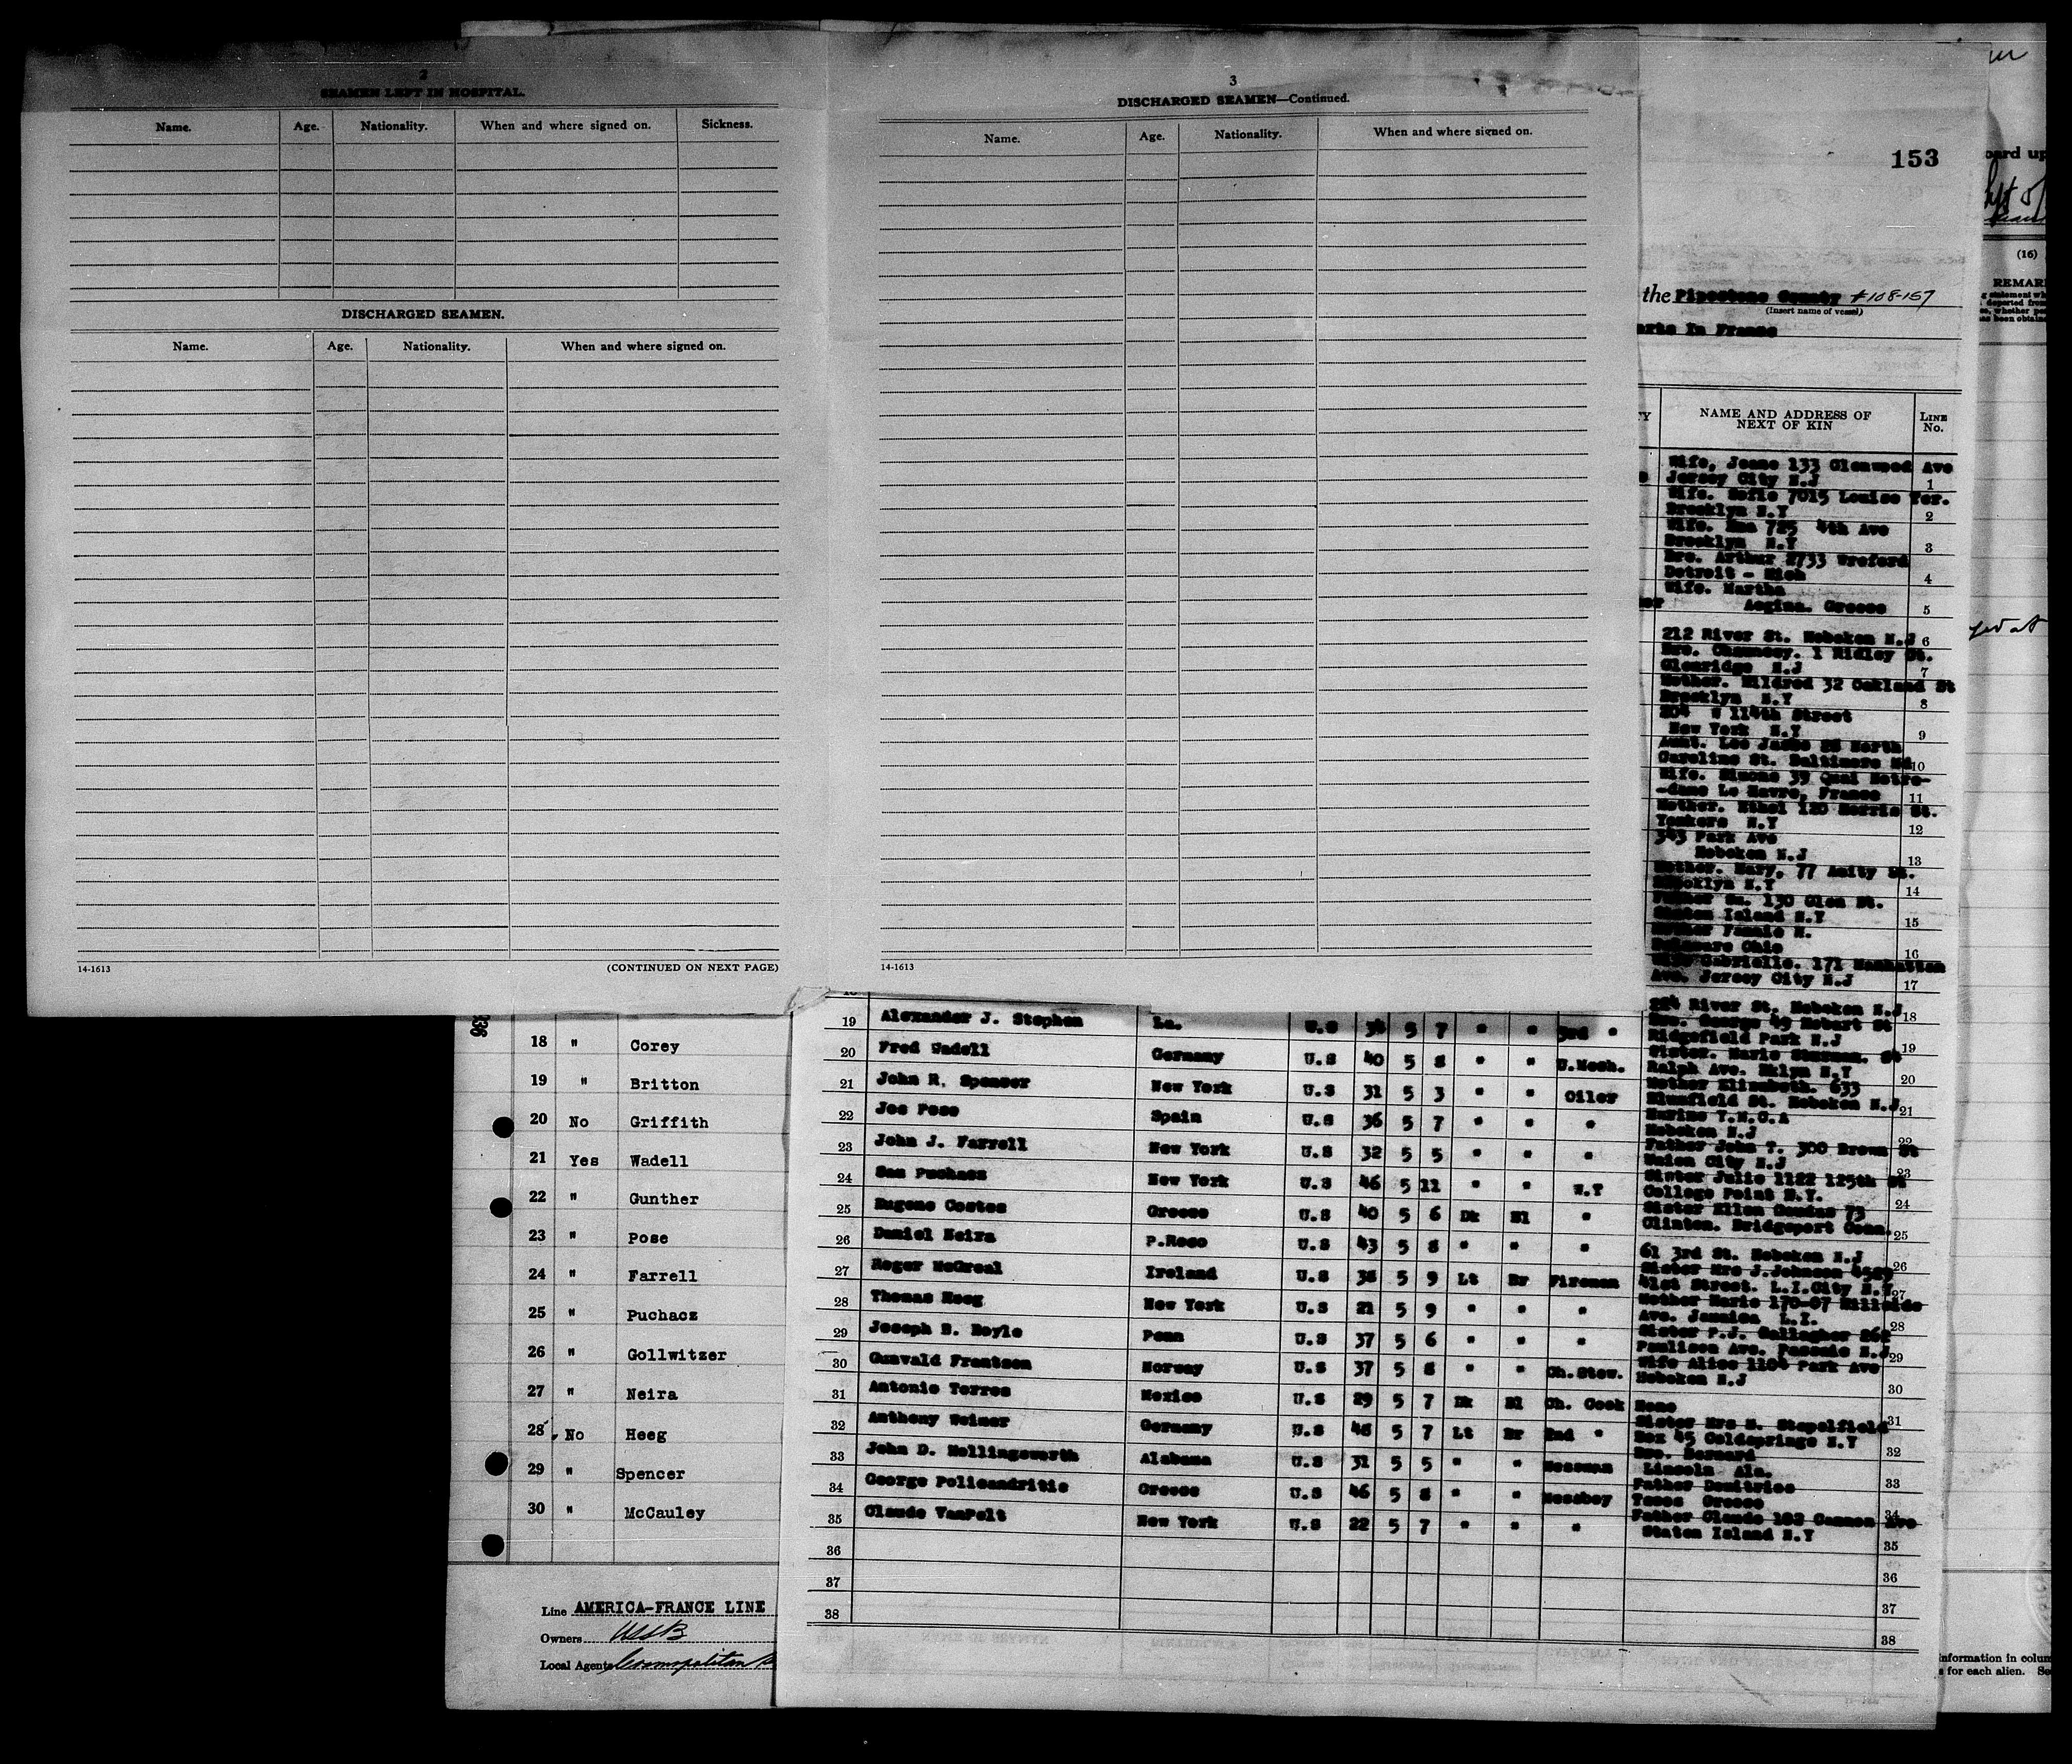 2
SEAMEN LEFT IN HOSPITAL.
Name. Age. Nationality. When and where signed on. Sickness.
DISCHARGED SEAMEN.
Name. Age. Nationality. When and where signed on.
14-1613 (CONTINUED ON NEXT PAGE)
3
DISCHARGED SEAMEN—Continued.
Name. Age. Nationality. When and where signed on.
14-1613
153
the Pipestone County #108-157
(Insert name of vessel)
In France
NAME AND ADDRESS OF NEXT OF KIN LINE No.
Wife, Jeane 133 Glenwood Ave
Jersey City N.J 1
Wife. Sofie 7015 Louise Ter.
Brooklyn N.Y 2
Wife. Ema 725 4th Ave
Brooklyn N.Y 3
Bro. Arthur 2733 Wreford
Detroit - Mich 4
Wife. Martha
Aegina. Greece 5
212 River St. Hoboken N.J 6
Bro. Chauncey. 1 Ridley St.
Glenridge N.J 7
Mother. Mildred 32 Oakland St
Brooklyn N.Y 8
204 W 114th Street
New York N.Y 9
Aunt. Lee 28 North
Caroline St. Baltimore Md 10
Wife. Simone 39 Quai Notre-
-dame Le Havre, France 11
Mother. Ethel 120 Morris St.
Yonkers N.Y 12
343 Park Ave
Hoboken N.J 13
Mother. Mary, 77 Amity St.
Brooklyn N.Y 14
Father Wm. 130 Glen St.
Staten Island N.Y 15
Mother Fannie M.
Delaware Ohio 16
Wife Gabrielle. 171 Manhattan
Ave. Jersey City N.J 17
River St. Hoboken N.J 18
19 Alexander J. Stephen La. U.S 34 5 7 " " 3rd " George 49 Hobart St
Ridgefield Park N.J 19
20 Fred Wadell Germany U.S 40 5 8 " " U.Mesh. Sister. Marie St
Ralph Ave. Bklyn N.Y 20
21 John R. Spencer New York U.S 31 5 3 " " Oiler Mother Elizabeth. 633
Blumfield St. Hoboken N.J 21
22 Jos Pose Spain U.S 36 5 7 " " " Marine Y.M.C.A
Hoboken N.J 22
23 John J. Farrell New York U.S 32 5 5 " " " Father John T. 300 Brown St
Union City N.J 23
24 Sam Puchacz New York U.S 46 5 11 " " W.T Sister Julie 1122 125th St
College Point N.Y. 24
25 Eugene Costes Greece U.S 40 5 6 Dk Bl " Sister Ellen 73
Clinton. Bridgeport Conn. 25
26 Daniel Neira P.Rico U.S 43 5 8 " " " 61 3rd St. Hoboken N.J 26
27 Roger McGreal Ireland U.S 38 5 9 Lt Br Fireman Sister Mrs J.Johnson
41st Street. L.I.City N.Y. 27
28 Thomas Heeg New York U.S 21 5 9 " " " Mother Marie 170-07 Hillside
Ave. Jamaica L.I. 28
29 Joseph B. Boyle Penn U.S 37 5 6 " " " Sister P.J. Gallagher 262
Paulison Ave. Passaic N.J 29
30 Gunvald Frantsen Norway U.S 37 5 8 " " Ch.Stew. Wife Alice 1104 Park Ave
Hoboken N.J 30
31 Antonio Torres Mexico U.S 29 5 7 Dk Bl Ch. Cook None 31
32 Anthony Weimer Germany U.S 48 5 7 Lt Br 2nd " Sister Mrs M. Stapelfield
Box 45 Coldsprings N.Y 32
33 John D. Hollingsworth Alabama U.S 31 5 5 " " Messman Bro. Barnard
Lincoln Ala. 33
34 George Policandritis Greece U.S 46 5 8 " " Messboy Father Demitrios
Greece 34
35 Claude VanPelt New York U.S 22 5 7 " " " Father Claude 182 Cannon Ave
Staten Island N.Y 35
36 36
37 37
38 38
18 " Corey
19 " Britton
20 No Griffith
21 Yes Wadell
22 " Gunther
23 " Pose
24 " Farrell
25 " Puchacz
26 " Gollwitzer
27 " Neira
28 No Heeg
29 " Spencer
30 " McCauley
Line AMERICA-FRANCE LINE
Owners USSB
Local Agents Cosmopolitan
(16)
REMAR
information in colum
s for each alien. Se